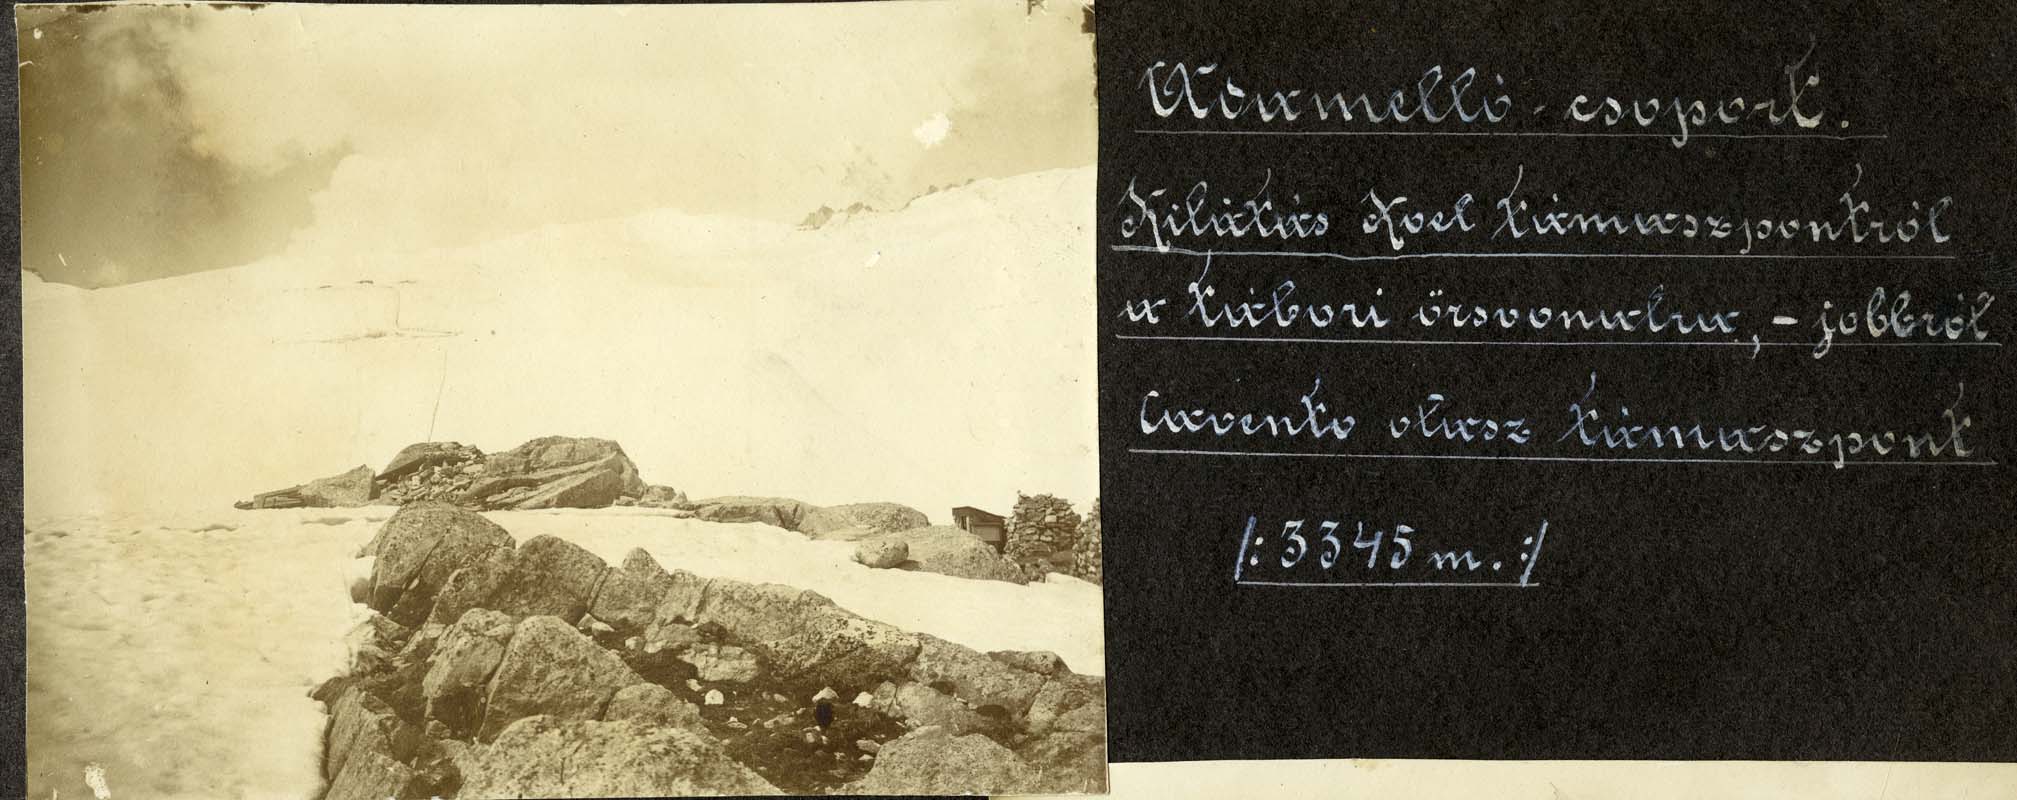 Adamelló-csoport.
Kilátás Koel támaszpontról
a tábori őrsvonalra, - jobbról
Cavento olasz támaszpont
/: 3345 m. :/